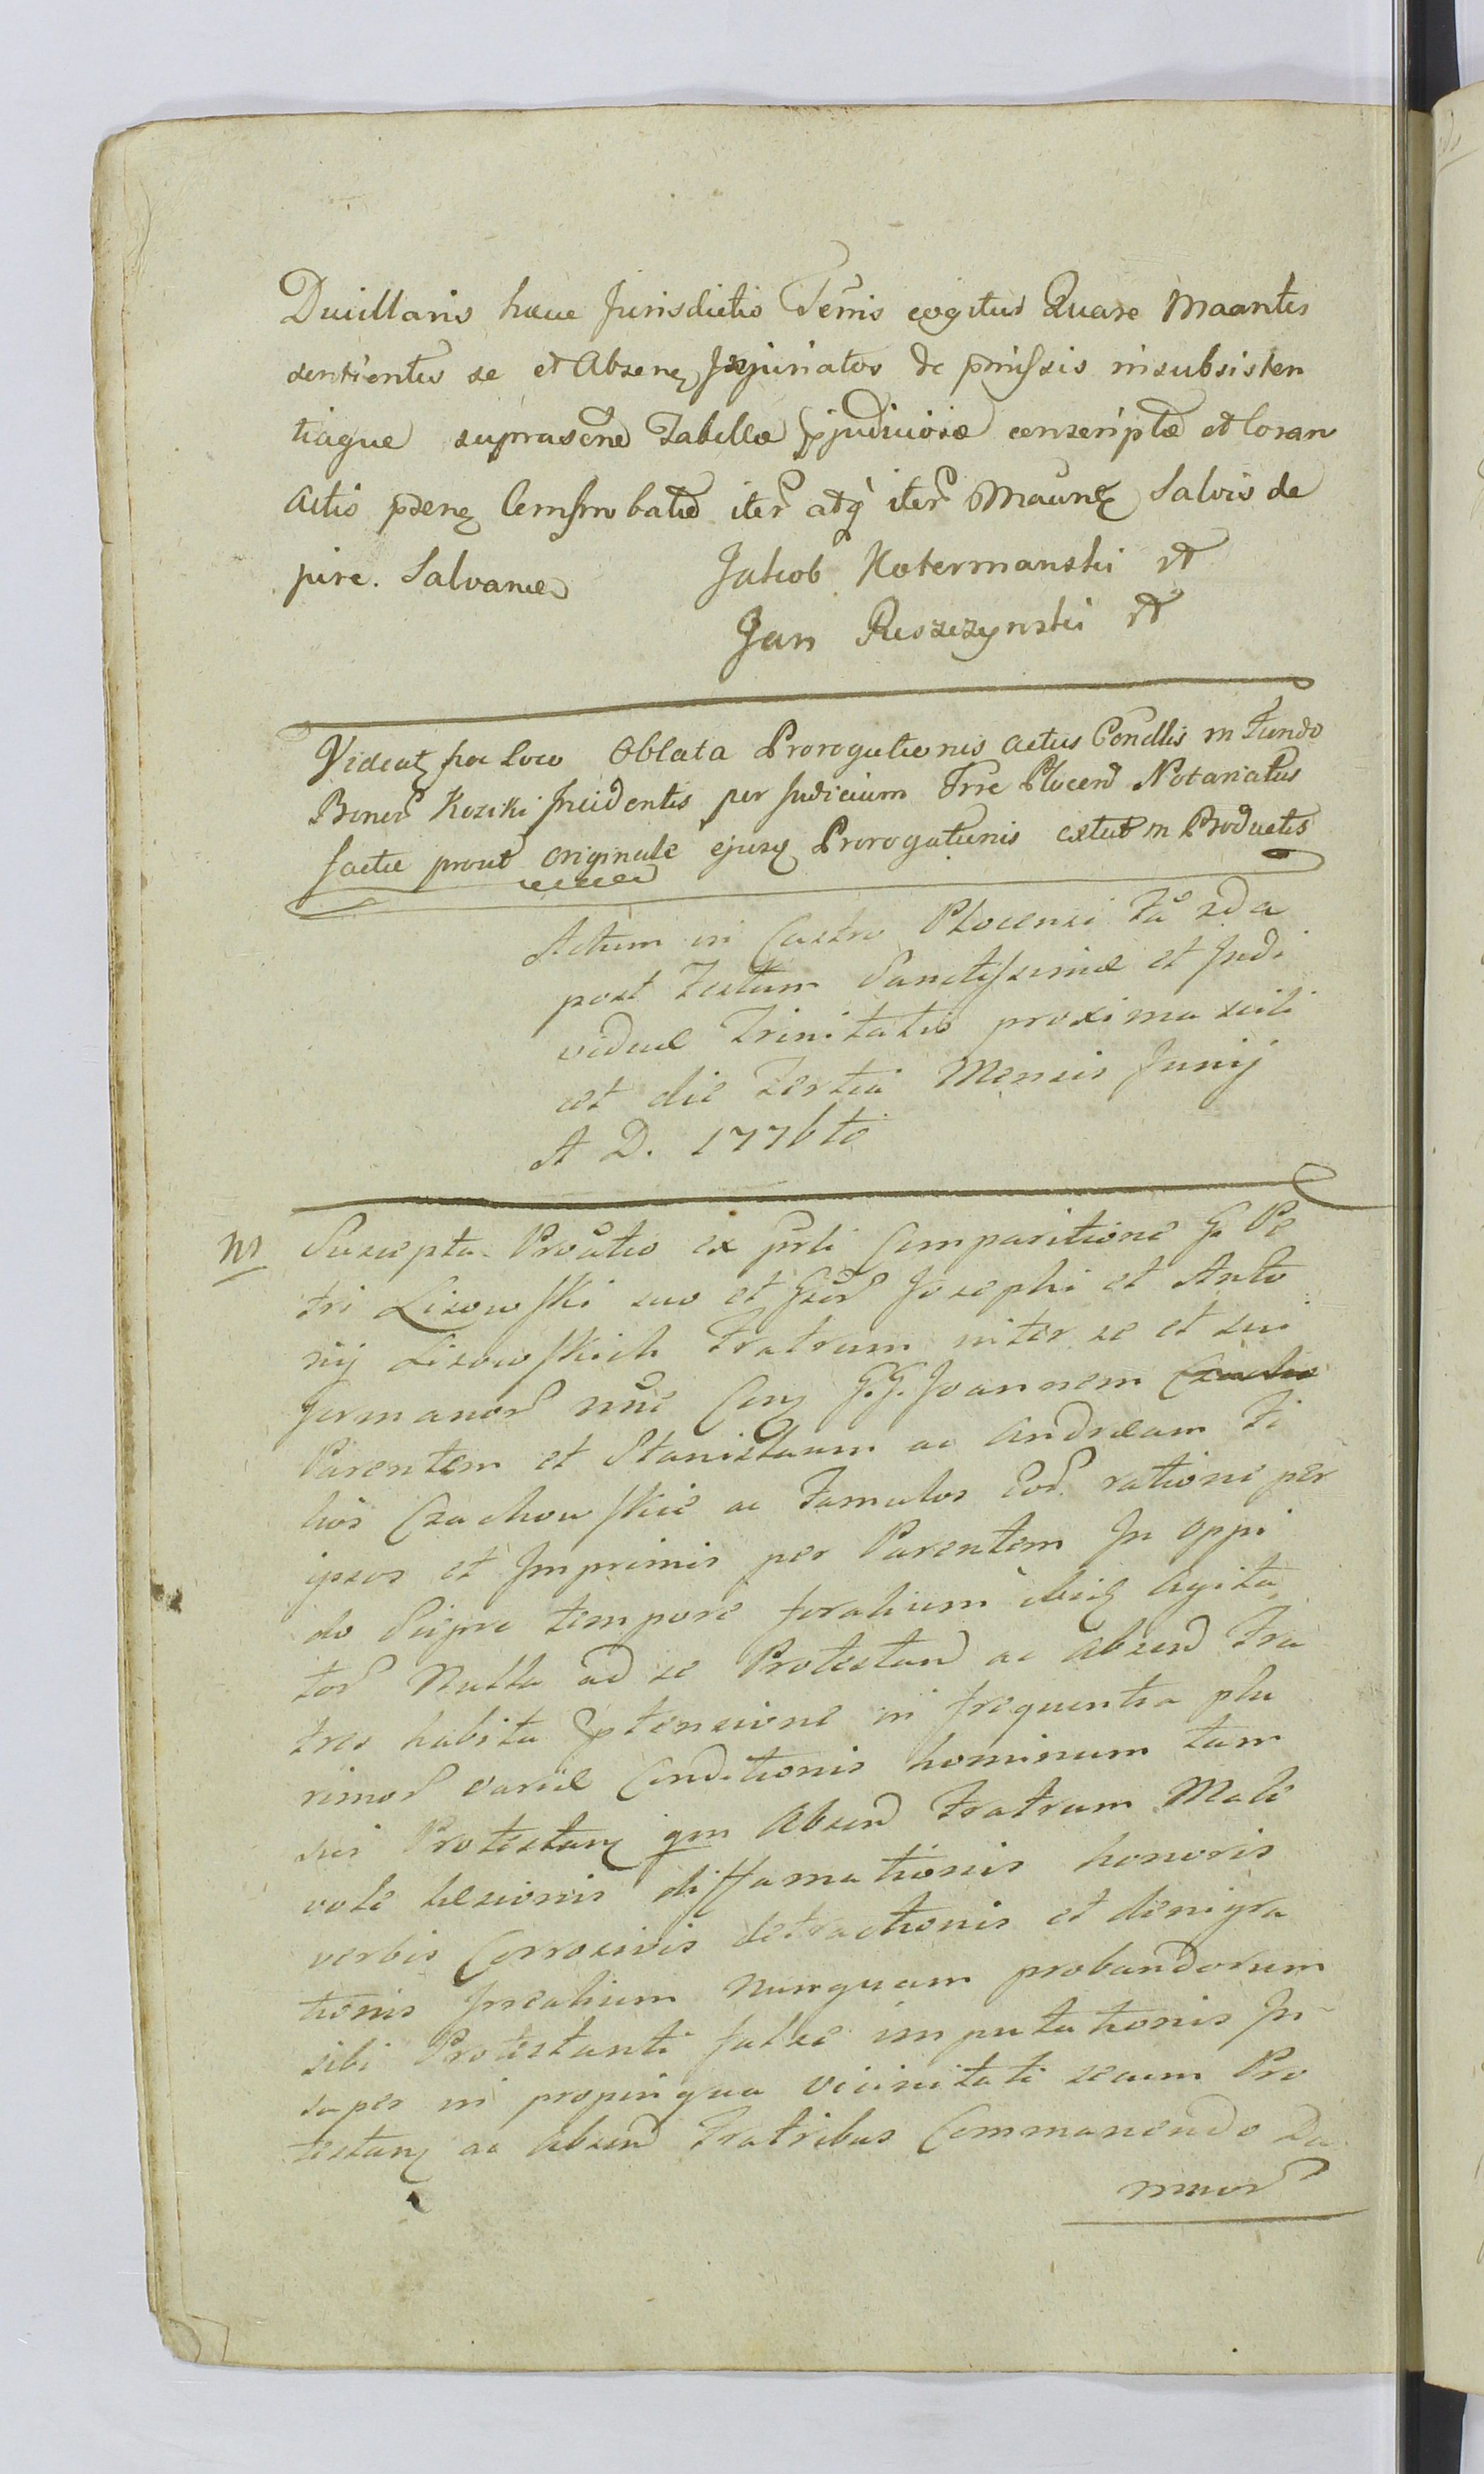 Duillaris haec Jurisdictio Terris cogitus Quare Maantes
sentientes se et Absen Injuriatos de pmissis insubsisten
tiaque suprascne Tabellae pjudiciosae conscriptae et Coran
Actis psen Comprobatae iter atq iter Maun Salvis de
jure. Salvanae
Jakob Kotermanski
Jan Reszczynski
Videat hoc Loco Oblata Prorogationis actus Condlis in Fundo
Bonor Koziki Incidentis per Judicium Trre Plocen Notariatus
factae prout originale ejusq Prorogationis extat in Productis
Actum in Castro Plocensi Fa 2da
post Festum Sanctissimae et Indi
viduae Trinitatis proxima scili
cet die Tertia Mensis Junij
A D. 1776to
Suscepta Protatio ex prli Comparitione G. Pe
tri Lisowski suo et Gsor Josephi et Anto
nij Lisowskich Fratrum inter se et sui
Germanor nne Con G.G. Joannem
Parentem et Stanislaum ac Andream Fi
lios Czachowskie ac Famulos Eor ratione per
ipsos et Imprimis per Parentem In Oppi
do Sierpc tempore foralium ibiq Agita
tor Nulla ad se Protestan ac Absen Fra
tres habita ptensione in frequentia plu
rimor variae Conditionis hominum tam
sui Protestan qm Absen Fratrum Male
vole lesionis diffamationis honoris
verbis Corrosivis detractionis et denigra
tionis Inealium nunquam probandorum
sibi Protestanti falsae imputationis In
super in propinqua vicinitate secum Pro
testan ac Absen Fratribus Commanendo Da
mnor